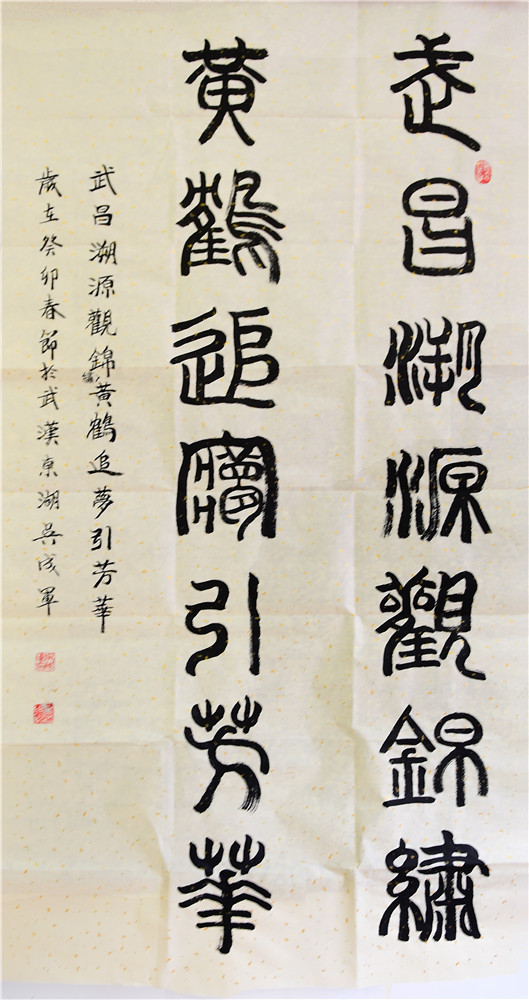 武昌溯源觀錦繡
黃鶴追夢引芳華
武昌溯源觀錦繡黃鶴追夢引芳華
歲在癸卯春節於武漢東湖吳成軍